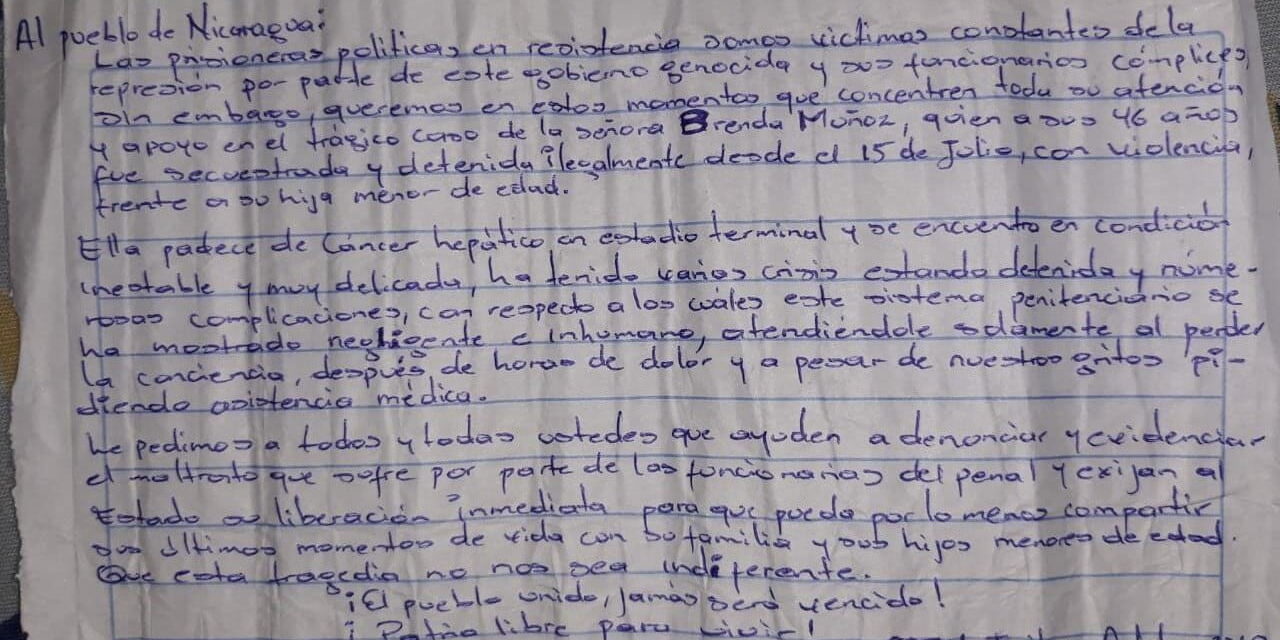 Al pueblo de Nicaragua:
Las prisioneras politicas en resistencia somos victimas constantes de la
represión por parte de este gobierno genocida y sus funcionarios cómplices,
sin embago, queremos en estos momentos que concentren toda su atención
y apoyo en el trágico caso de la señora Brenda Muñoz, quien a sus 46 años
fue secuestrada y detenida ilegalmente desde el 15 de Julio, con violencia,
frente a su hija menor de edad.
Ella padece de Cáncer hepático en estadio terminal y se encuentra en condición
inestable y muy delicada, ha tenido varias crisis estando detenida y núme-
rosas complicaciones, con respecto a los cuáles este sistema penitenciario se
ha mostrado negligente e inhumano, atendiéndole solamente al perder
la conciencia, después de horas de dolor y a pesar de nuestros gritos pi-
diendo asistencia médica.
Le pedimos a todos y todas ustedes que ayuden a denunciar y evidenciar
el maltrato que sufre por parte de las funcionarias del penal y exijan al
Estado su liberación inmediata para que pueda por lo menos compartir
sus últimos momentos de vida con su familia y sus hijos menores de edad.
Que esta tragedia no nos sea indiferente.
¡El pueblo unido, jamás será vencido!
¡Patria libre para vivir!